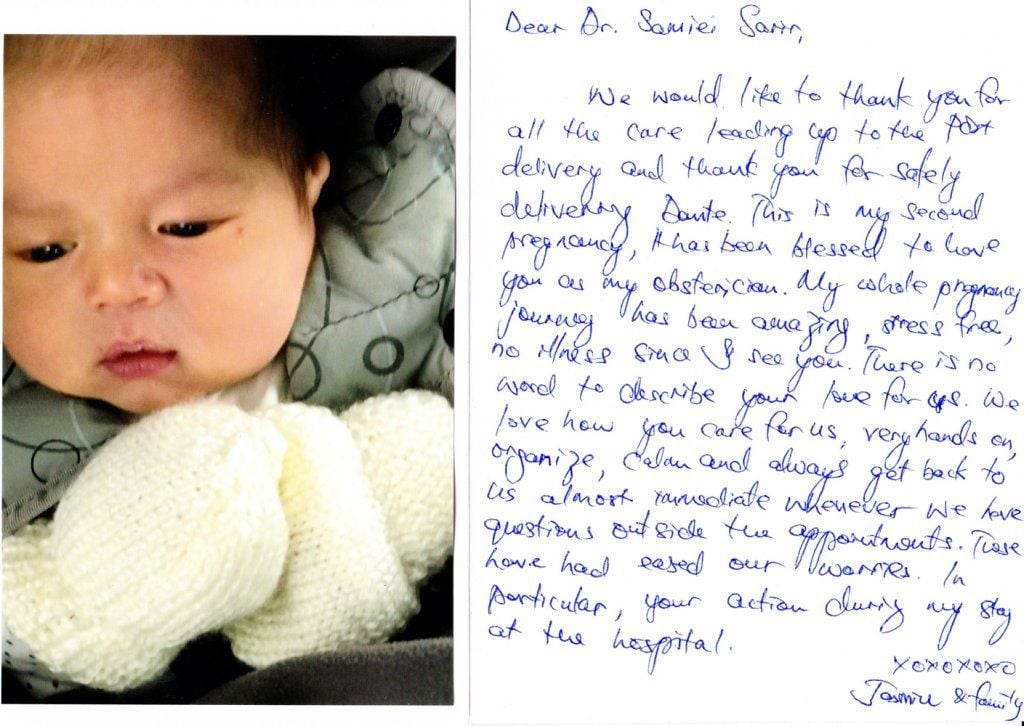 Dear Dr. Samiei Sarir,
We would like to thank you for
all the care leading up to the
delivery and thank you for safely
delivering Dante. This is my second
pregnancy, it has been blessed to have
you as my obsterician. My whole pregnancy
journey has been amazing, stress free,
no illness since I see you. There is no
word to describe your love for us. We
love how you care for us, very hands on,
organize, calm and always get back to
us almost immediate whenever we have
questions outside the appointments. Those
have had eased our worries. In
particular, your action during my stay
at the hospital.
xoxoxoxo
& family